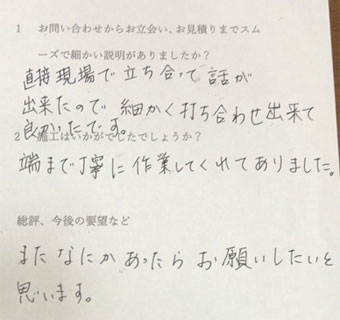 1 お問い合わせからお立会い、お見積りまでスム
ーズで細かい説明がありましたか？
直接現場で立ち合って話が
出来たので 細かく打ち合わせ出来て
良かったです。
2 施工はいかがでしたでしょうか？
端まで丁寧に作業してくれてありました。
総評、今後の要望など
またなにかあったら お願いしたいと
思います。